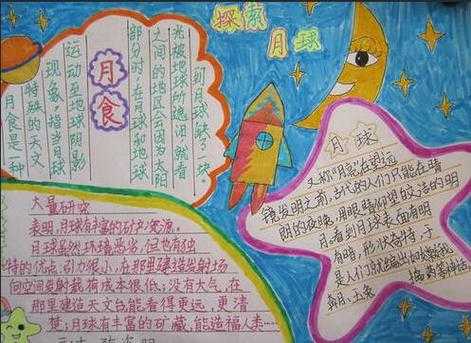 探索
月球
月食
月食是一种
特殊的天文
现象,指当月球
运动至地球阴影
部分时,在月球和地球
之间的地区会因为太阳
光被地球所遮闭,就看
到月球缺了一块。
月球
又称“月亮”在望远
镜发明之前,古代的人们只能在晴
朗的夜晚,用眼睛仰望皎洁的明
月。看到月球表面有明
有暗,形状奇特,于
是人们就编出嫦娥
奔月、玉兔
大量研究
表明,月球有丰富的矿产资源。
月球虽然环境恶劣,但也有独
特的优点:引力很小,在那里建造发射场
向空间发射载有成本很低;没有大气,在
那里建造天文台,能看得更远,更清
楚;月球有丰富的矿藏,能造福人类……